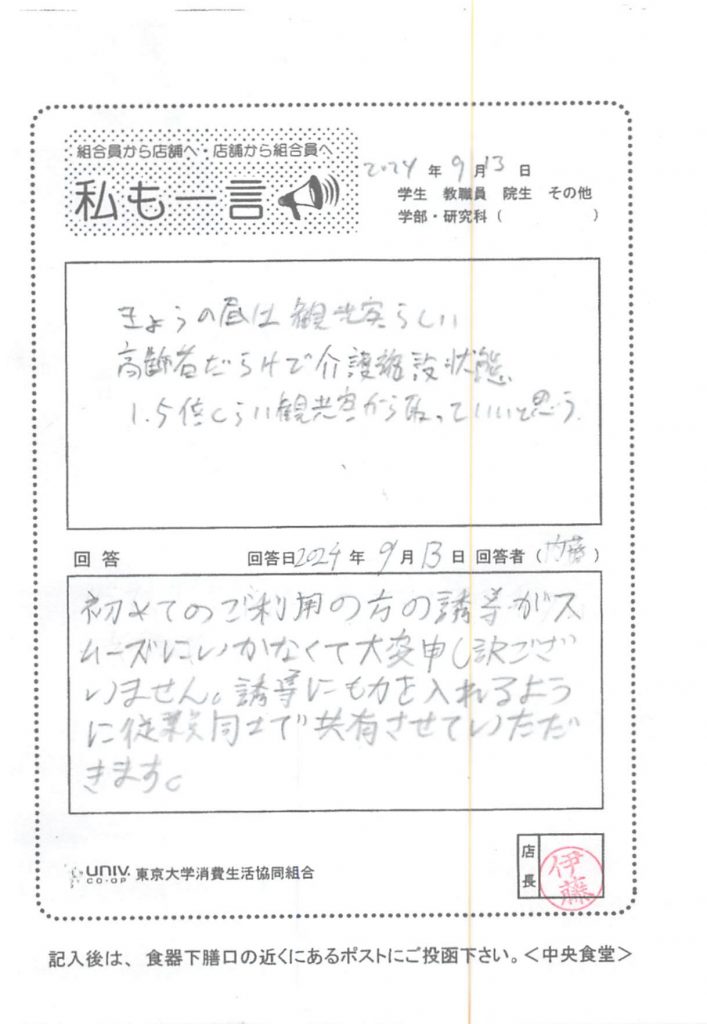 組合員から店舗へ・店舗から組合員へ
私も一言
2024 年 9 月 13 日
学生 教職員 院生 その他
学部・研究科( )
きょうの昼は観光客らしい
高齢者だらけで介護施設状態
1.5倍くらい観光客から取っていいと思う.
回答 回答日2024年 9月 13日 回答者(内藤)
初めてのご利用の方の誘導がス
ムーズにいかなくて大変申し訳ござ
いません。誘導にも力を入れるよう
に従業員同士で共有させていただ
きます。
UNIV. CO-OP 東京大学消費生活協同組合
店長
伊藤
記入後は、食器下膳口の近くにあるポストにご投函下さい。<中央食堂>